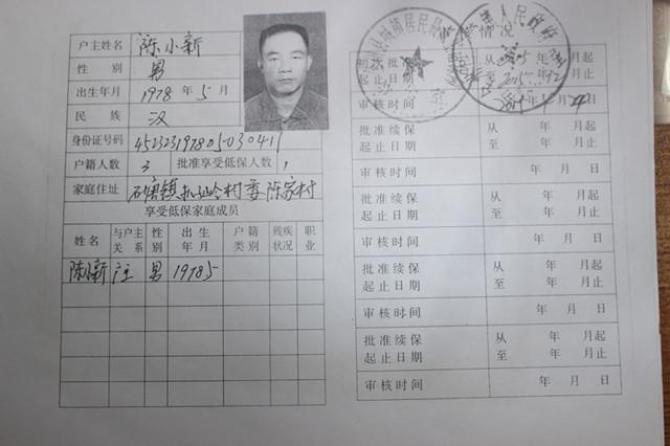 户主姓名 陈小新
性别 男
出生年月 1978年5月
民族 汉
身份证号码
户籍人数 3 批准享受低保人数 1
家庭住址 陈家村
享受低保家庭成员
姓名 与户主关系 性别 出生年月 户籍类别 残疾状况 职业
陈小新 户主 男 19785
情况
居民
人民政府
批
起止日期
年 月起
至 年 月止
审核时间 年 月 日
批准续保起止日期
从 年 月起
至 年 月止
审核时间 年 月 日
批准续保起止日期
从 年 月起
至 年 月止
审核时间 年 月 日
批准续保起止日期
从 年 月起
至 年 月止
审核时间 年 月 日
批准续保起止日期
从 年 月起
至 年 月止
审核时间 年 月 日